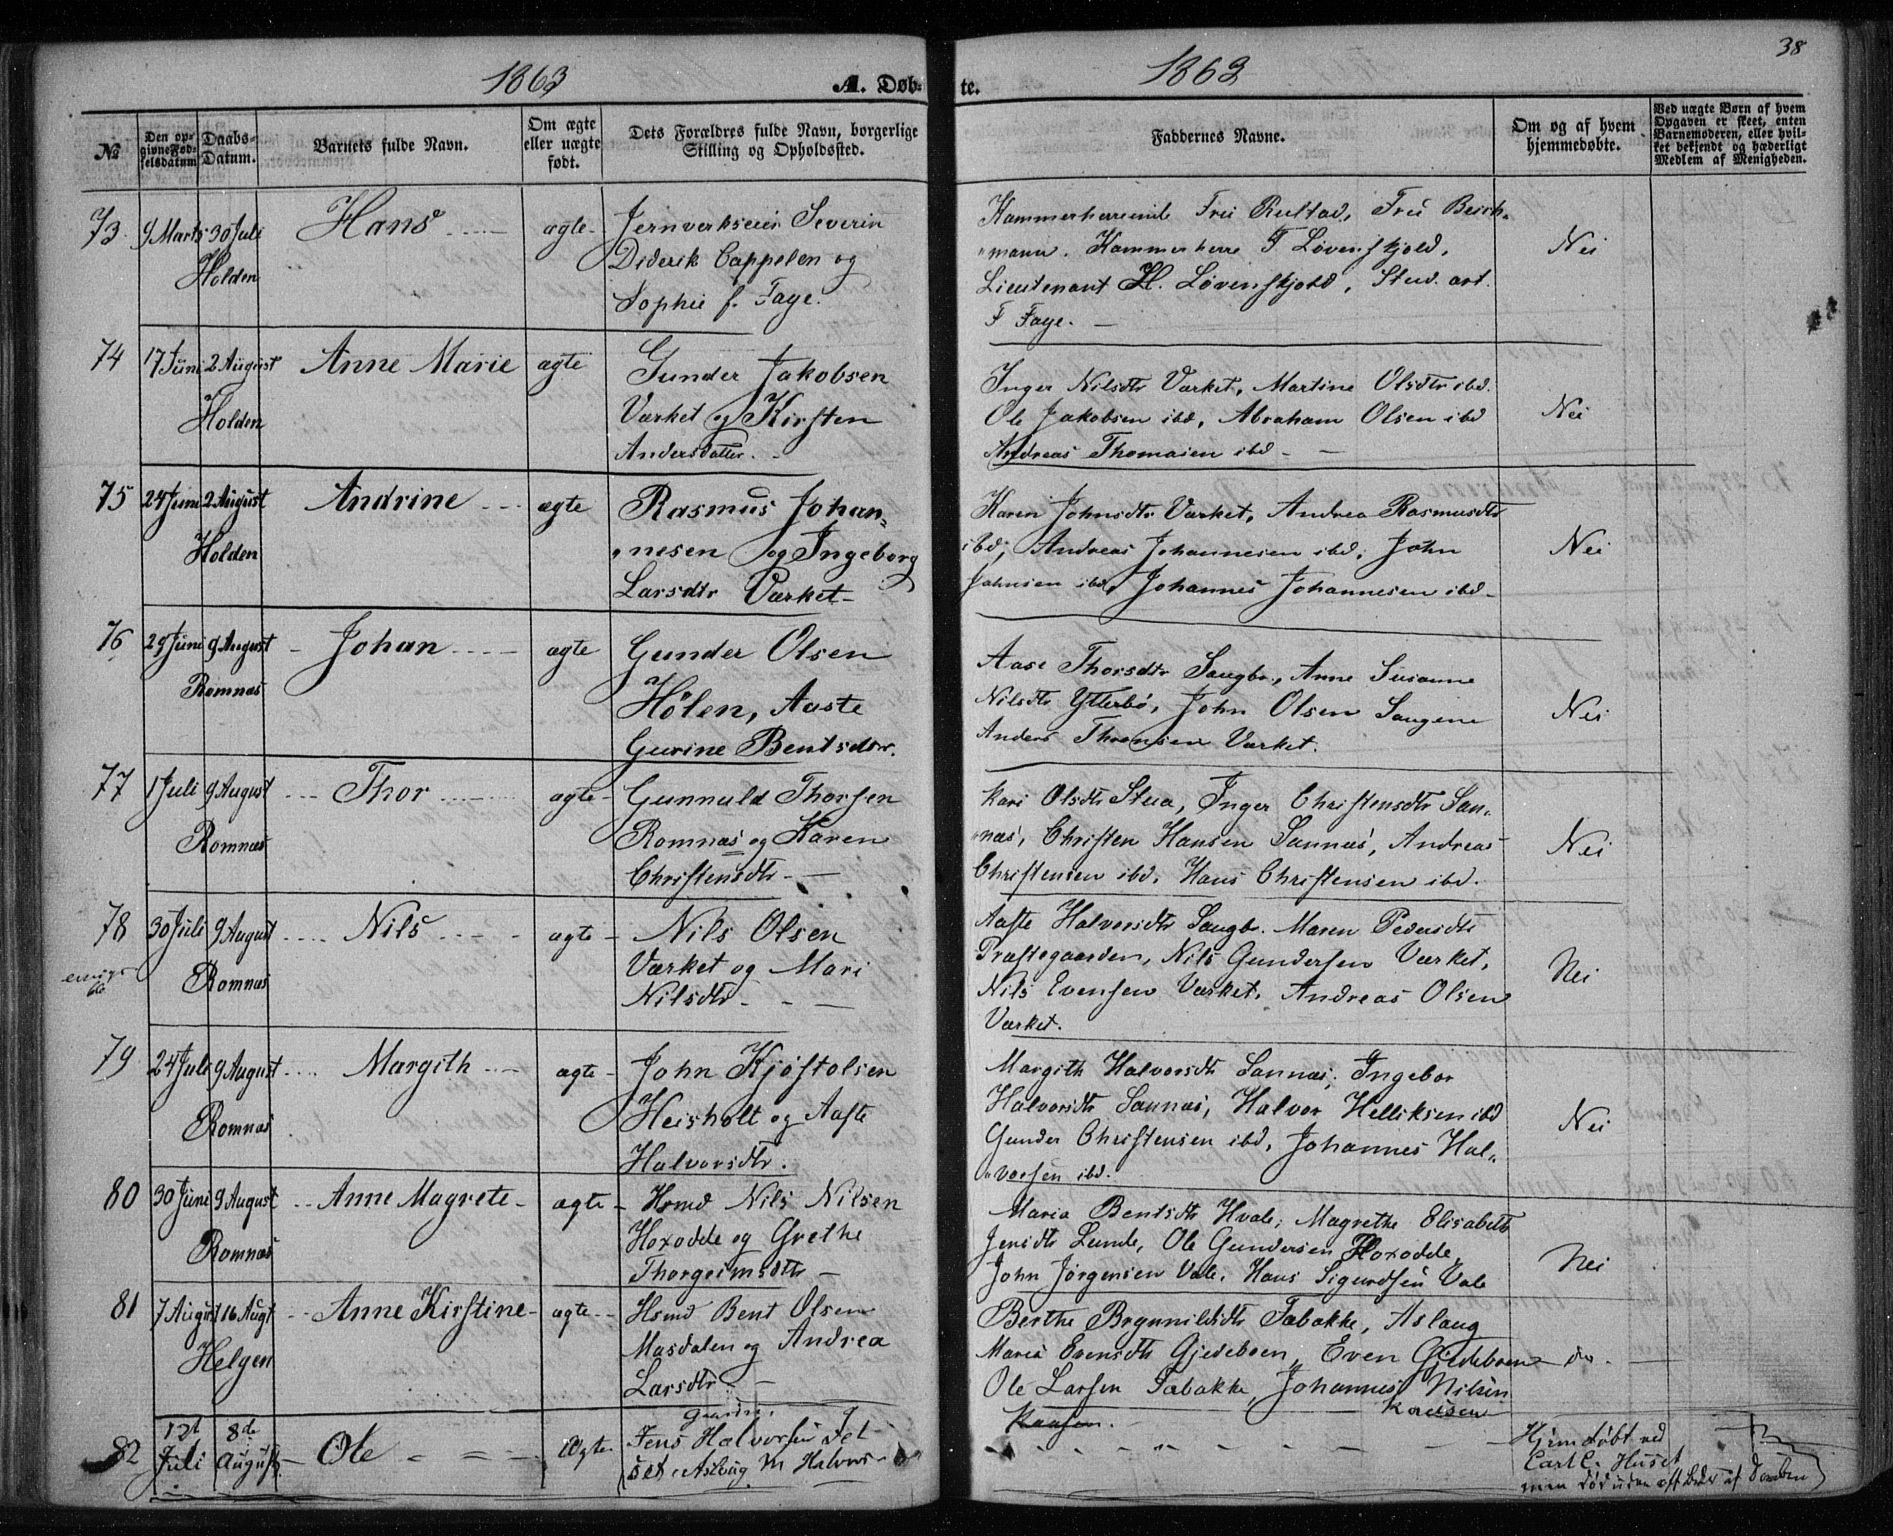 1863
A. Døb-
te.
1863
38
№
Den op-
givne Fød-
selsdatum
Daabs-
Datum.
Barnets fulde Navn.
Om ægte
eller uægte
født.
Dets Forældres fulde Navn, borgerlige
Stilling og Opholdssted.
Faddernes Navne.
Om og af hvem
hjemmedøbte.
Ved uægte Børn af hvem
Opgaven er skeet, enten
Barnemoderen, eller hvil-
ket bekjendt og hæderligt
Medlem af Menigheden.
73
9 Marts
30 Juli
Holden
Hans
ægte
Jernverkseier Severin
Diderik Cappelen og
Sophie f. Faye.
Kammerherreinde Frü Rustad, Frü Beich-
mann. Kammerherre F Løvenskjold,
Lieutenant H. Løvenskjold, Stud. art.
F Faye.
Nei
74
17 Juni
2 August
Holden
Anne Marie
ægte
Gunder Jakobsen
Værket og Kirsten
Andersdatter.
Inger Nilsdtr Værket, Martine Olsdtr ibd.
Ole Jakobsen ibd, Abraham Olsen ibd
Andreas Thomasen ibd
Nei
75
24 Juni
2 August
Holden
Andrine
ægte
Rasmus Johan-
nesen og Ingeborg
Larsdtr Værket
Karen Johnsdtr Værket, Andrea Rasmusdtr
ibd, Andreas Johannesen ibd, John
Johnsen ibd, Johannes Johannesen ibd
Nei
76
29 Juni
9 August
Romnæs
Johan
ægte
Gunder Olsen
Hølen, Aaste
Gurine Bentsdtr.
Aase Thorsdtr Saugbr., Anne Susanne
Nilsdtr Ytterbø, John Olsen Saugene
Anders Thronsen Værket.
Nei
77
1 Juli
9 August
Romnæs
Thor
ægte
Gunnuld Thorsen
Romnæs og Karen
Christensdtr
Kari Olsdtr Stua, Inger Christensdtr San-
næs, Christen Hansen Sannæs, Andreas
Christensen ibd, Hans Christensen ibd.
Nei
78
30 Juli
9 August
Romnæs
Nils
ægte
Nils Olsen
Værket og Mari
Nilsdtr
Aaste Halvorsdtr Saugbr. Maren Pedersdtr
Præstegaarden, Nils Gundersen Værket,
Nils Evensen Værket, Andreas Olsen
Værket.
Nei
79
24 Juli
9 August
Romnæs
Margith
ægte
John Kjøstolsen
Heisholt og Aaste
Halvorsdtr.
Margith Halvorsdtr Sannæs, Ingebor
Halvorsdtr Sannæs, Halvor Helliksen ibd
Gunder Christensen ibd, Johannes Hal-
vorsen ibd.
Nei
80
30 Juni
9 August
Romnæs
Anne Magrete
ægte
Hsmd Nils Nilsen
Hoxodde og Grethe
Thorgeimsdtr
Maria Bentsdtr Hvale, Magrethe Elisabeth
Jensdtr Lunde, Ole Gundersen Hoxodde
John Jørgensen Vale, Hans Sigurdsen Vale
Nei
81
7 August
16 Augt
Helgen
Anne Kirstine
ægte
Hsmd Bent Olsen
Masdalen og Andrea
Larsdtr
Berthe Brynnildsdtr Tabakke, Aslaug
Maria Evensdtr Gjedeboen, Even Gjedeboen
Ole Larsen Tabakke, Johannes Nilsen
do.
82
12t
Juli
8de
August
Ole
Ægte
Jens Halvorsen
Aslaug
Hjemdøbt ved
Carl C. Huset
men død uden
af Daaben